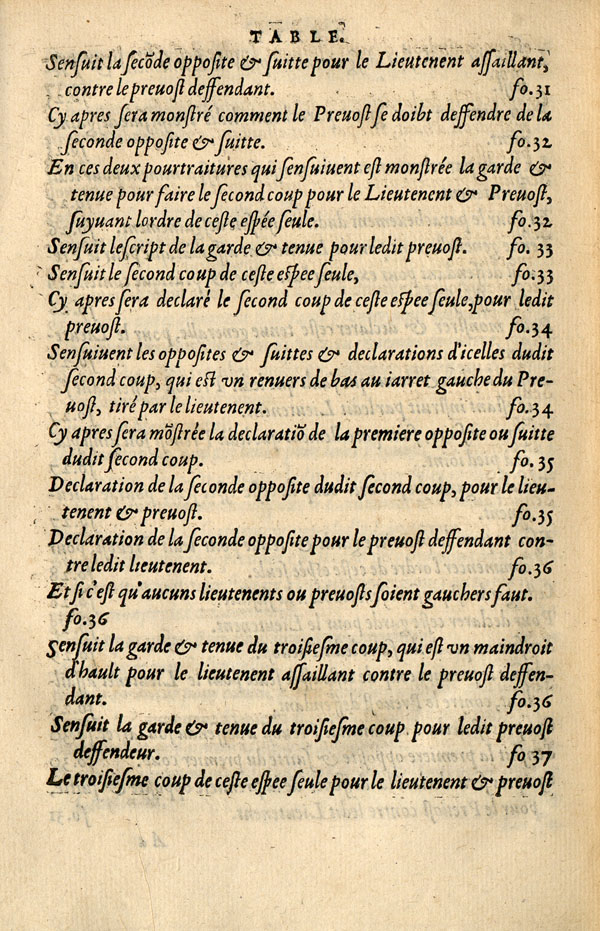 TABLE.
Sensuit la secõde opposite & suitte pour le Lieutenent assaillant,
contre le preuost deffendant. fo.31
Cy apres sera monstré comment le Preuost se doibt deffendre de la
seconde opposite & suitte. fo.32
En ces deux pourtraitures qui sensuiuent est monstrée la garde &
tenue pour faire le second coup pour le Lieutenent & Preuost,
suyuant lordre de ceste espée seule. fo.32
Sensuit lescript de la garde & tenue pour ledit preuost. fo. 33
Sensuit le second coup de ceste espee seule, fo.33
Cy apres sera declaré le second coup de ceste espee seule, pour ledit
preuost. fo.34
Sensuiuent les opposites & suittes & declarations d'icelles dudit
second coup, qui est vn renuers de bas au iarret gauche du Pre-
uost, tiré par le lieutenent. fo.34
Cy apres sera mõstrée la declaratiõ de la premiere opposite ou suitte
dudit second coup. fo.35
Declaration de la seconde opposite dudit second coup, pour le lieu-
tenent & preuost. fo.35
Declaration de la seconde opposite pour le preuost deffendant con-
tre ledit lieutenent. fo.36
Et si c'est qu'aucuns lieutenents ou preuosts soient gauchers faut.
fo.36
Sensuit la garde & tenue du troisiesme coup, qui est vn maindroit
d'hault pour le lieutenent assaillant contre le preuost deffen-
dant. fo.36
Sensuit la garde & tenue du troisiesme coup pour ledit preuost
deffendeur. fo 37
Le troisiesme coup de ceste espee seule pour le lieutenent & preuost